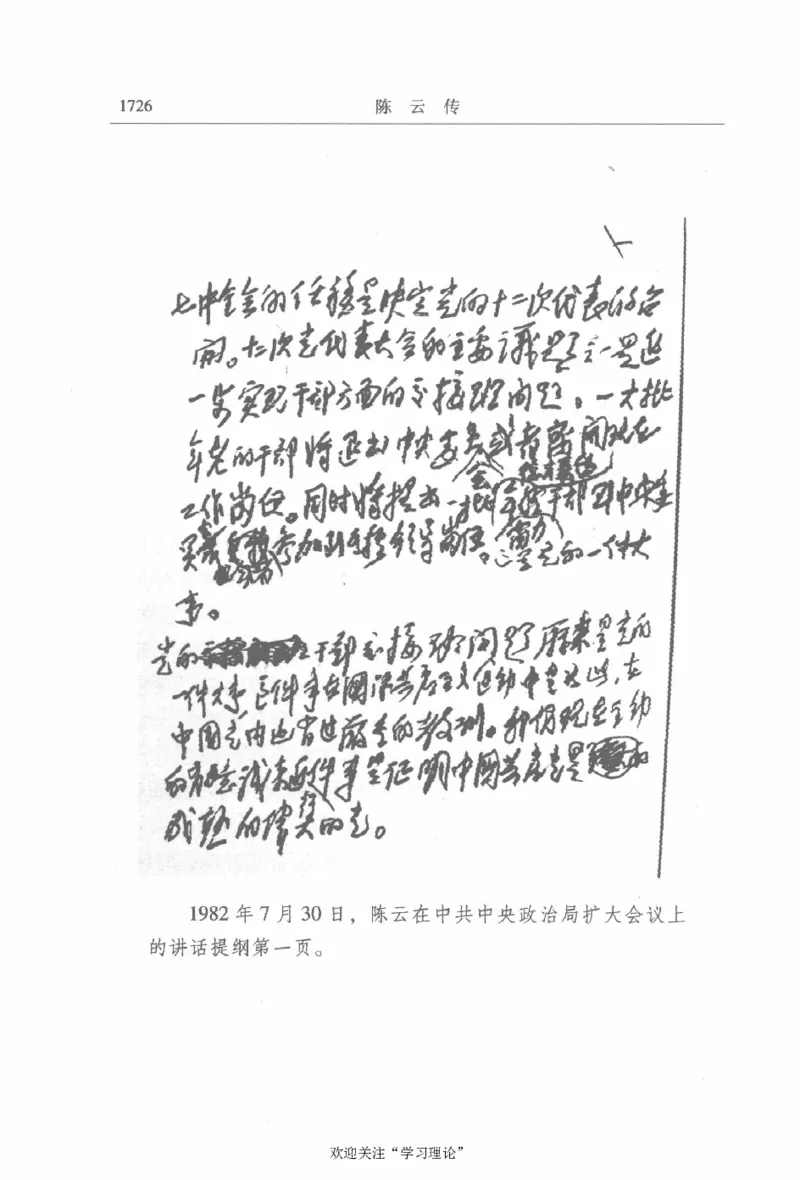 1726
陈云传
七中全会的任务是决定党的十二次代表的召
开。十二次党代表大会的主要议题之一是进
一步实现干部方面的交接班问题。一大批
年老的干部将退出中央委员或者离开现在
会
工作岗位。同时将提出一批年轻干部到中央委
参加到 领导岗位。这是党的一件大
事。
党的 干部交接班问题历来是党的
一件大事,这件事在国际共产主义运动中是如此,在
中国党内也有过严重的教训。我们现在主动
的有意识来办这件事是证明中国共产党是 的
成熟的 的党。
1982年7月30日,陈云在中共中央政治局扩大会议上
的讲话提纲第一页。
欢迎关注“学习理论”